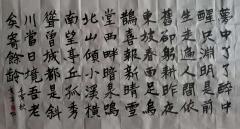 夢中了了醉中
醒只淵明是前
生走遍人間依
舊卻躬耕昨夜
東坡春雨足烏
鵲喜報新晴雪
堂西畔暗泉鳴
北山傾小溪橫
南望亭丘孤秀
聳曾城都是斜
川當日境吾老
矣寄餘齡